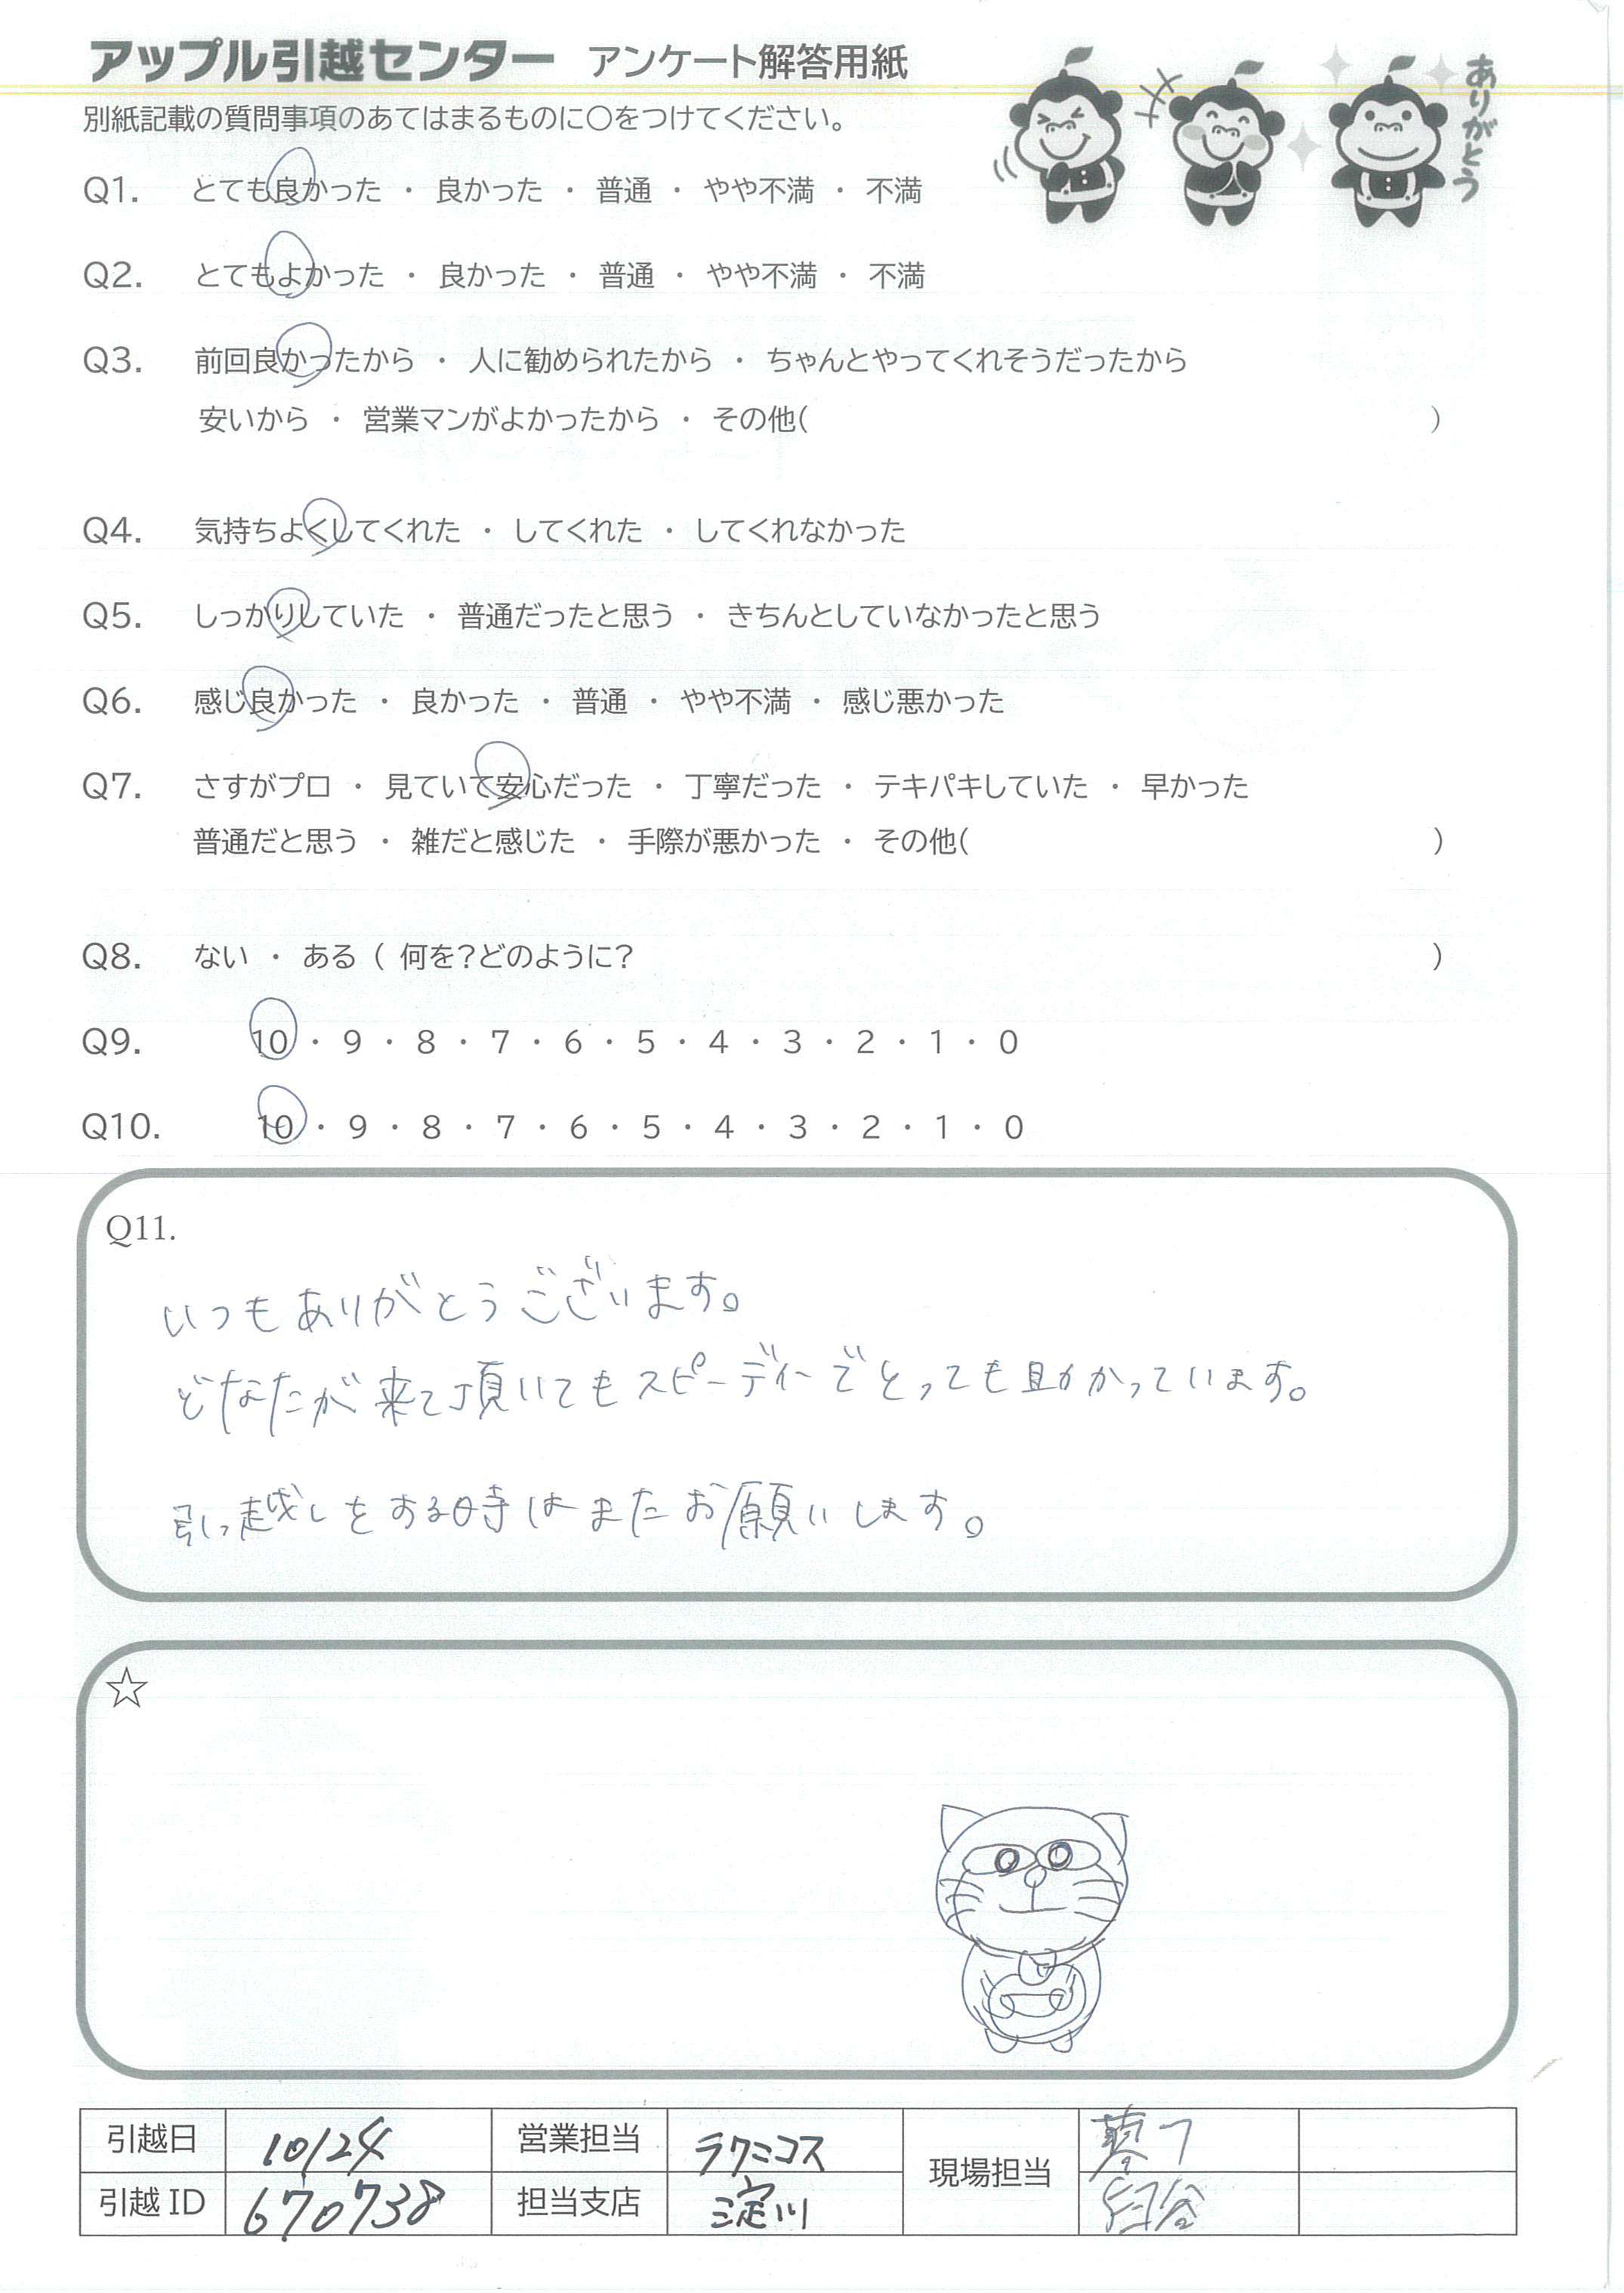 アップル引越センター アンケート解答用紙
ありがとう
別紙記載の質問事項のあてはまるものに○をつけてください。
Q1. とても良かった ・ 良かった ・ 普通 ・ やや不満 ・ 不満
Q2. とてもよかった ・ 良かった ・ 普通 ・ やや不満 ・ 不満
Q3. 前回良かったから ・ 人に勧められたから ・ ちゃんとやってくれそうだったから
安いから ・ 営業マンがよかったから ・ その他( )
Q4. 気持ちよくしてくれた ・ してくれた ・ してくれなかった
Q5. しっかりしていた ・ 普通だったと思う ・ きちんとしていなかったと思う
Q6. 感じ良かった ・ 良かった ・ 普通 ・ やや不満 ・ 感じ悪かった
Q7. さすがプロ ・ 見ていて安心だった ・ 丁寧だった ・ テキパキしていた ・ 早かった
普通だと思う ・ 雑だと感じた ・ 手際が悪かった ・ その他( )
Q8. ない ・ ある ( 何を?どのように? )
Q9. 10 ・ 9 ・ 8 ・ 7 ・ 6 ・ 5 ・ 4 ・ 3 ・ 2 ・ 1 ・ 0
Q10. 10 ・ 9 ・ 8 ・ 7 ・ 6 ・ 5 ・ 4 ・ 3 ・ 2 ・ 1 ・ 0
Q11.
いつもありがとうございます。
どなたが来て頂いてもスピーディーでとっても助かっています。
引っ越しをする時はまたお願いします。
☆
引越日 10/24 営業担当 ラクニコス 現場担当
引越ID 670738 担当支店 淀川